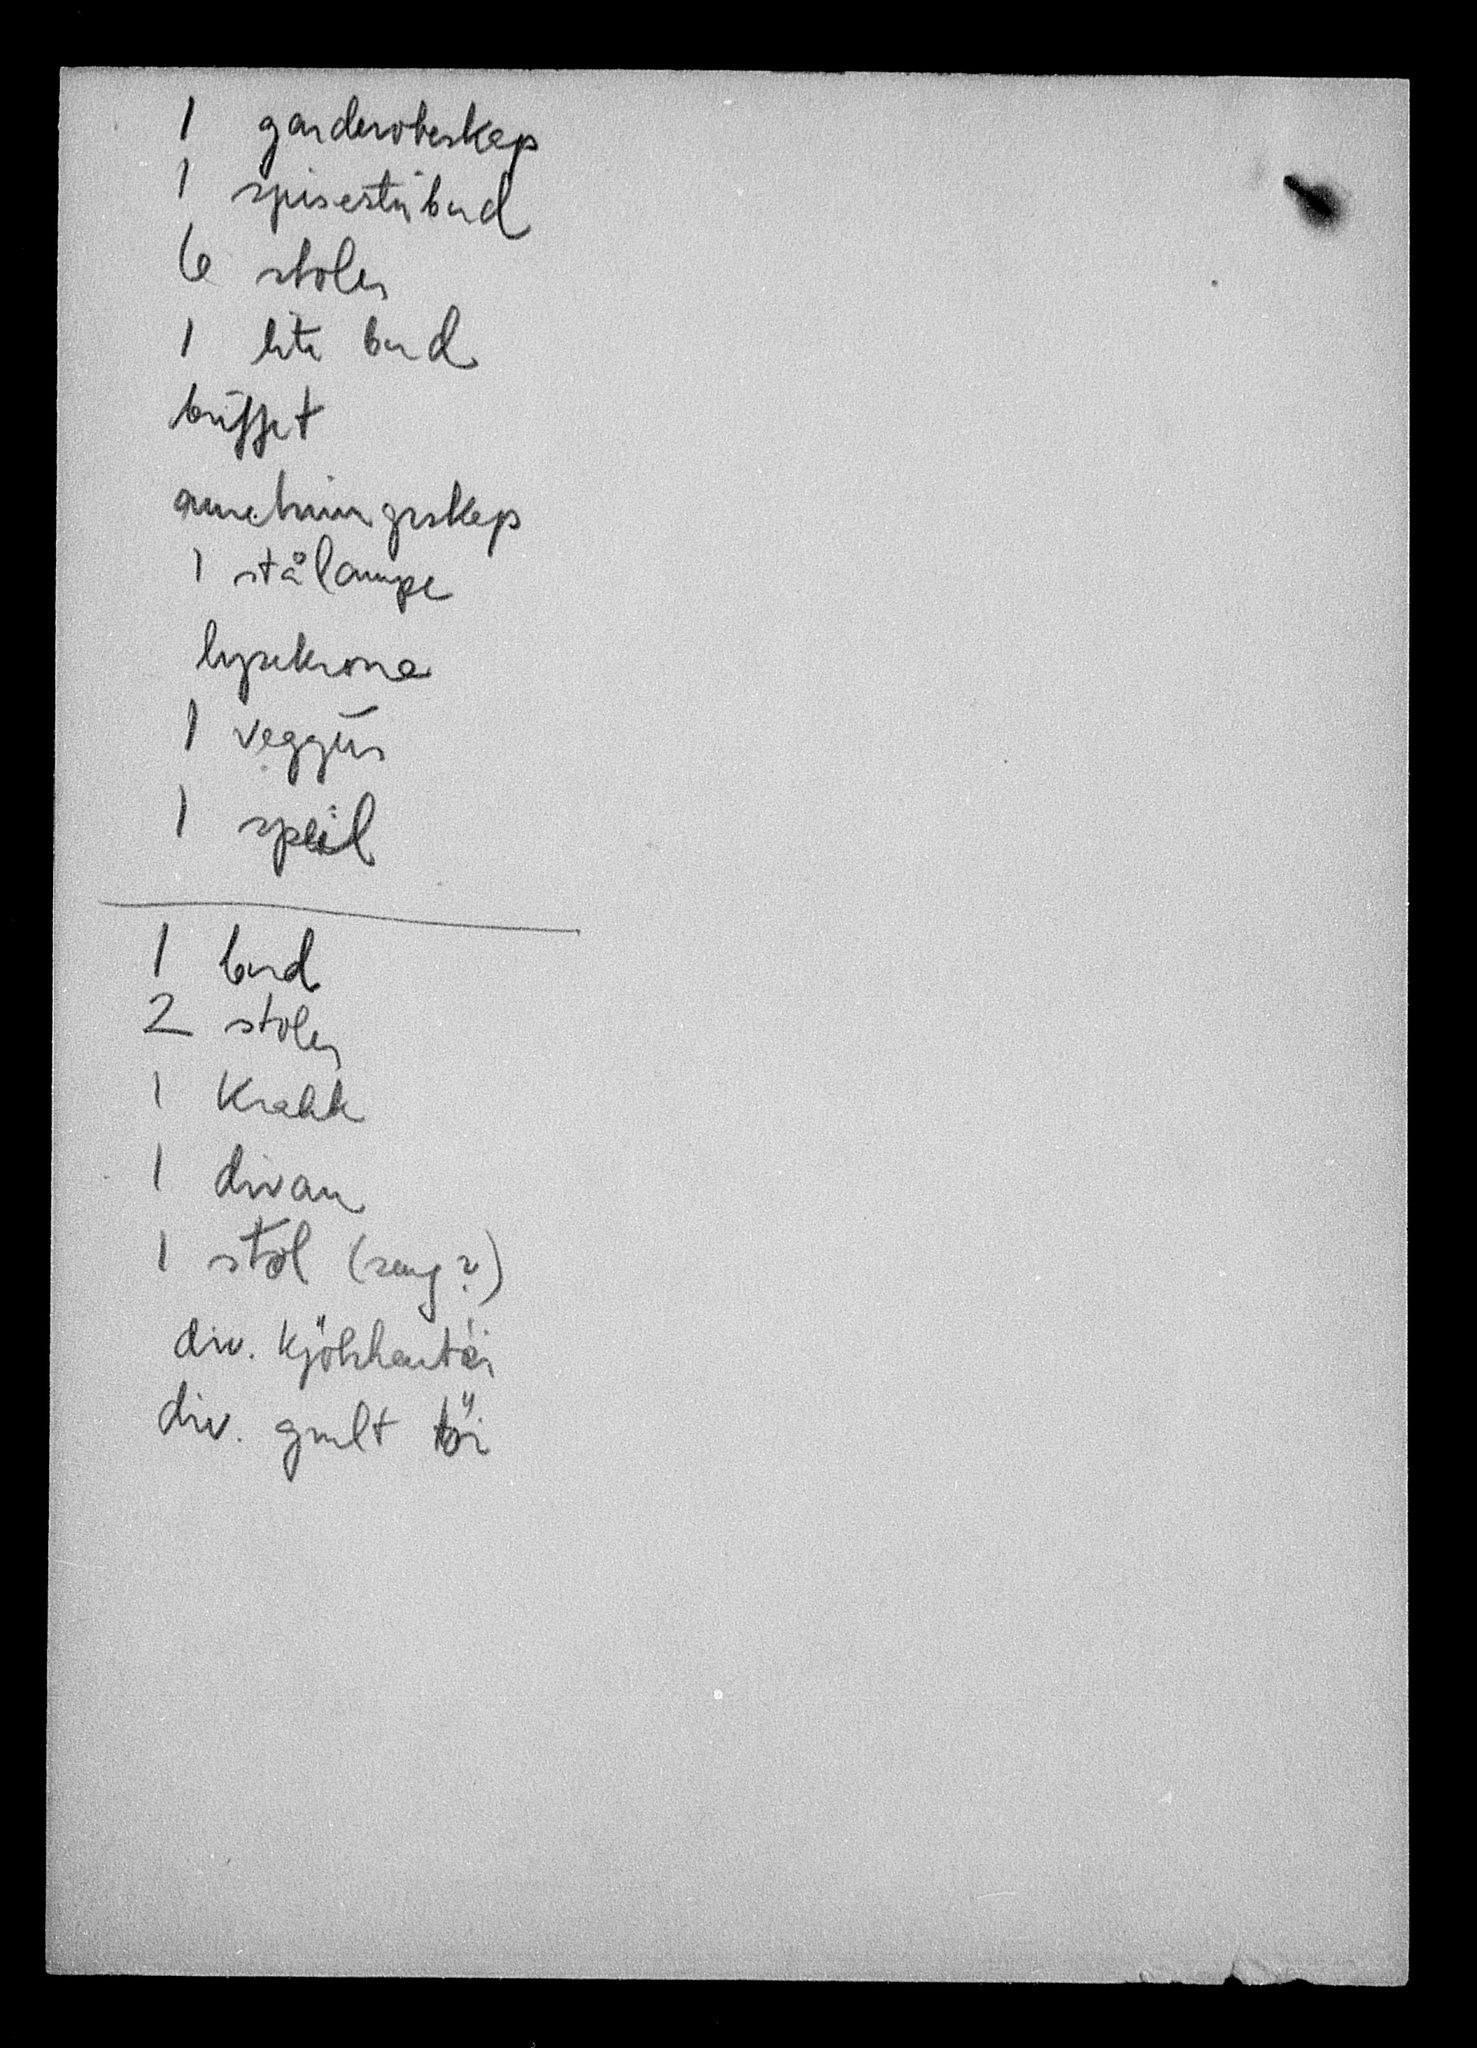 1 garderobeskap
1 spisestubord
6 stoler
1 lite bord
buffet
anretningsskap
1 stålampe
lysekrone
1 veggur
1 speil
1 bord
2 stoler
1 Krakk
1 divan
1 stol (seng?)
div. kjökkentöi
div. gmlt töi